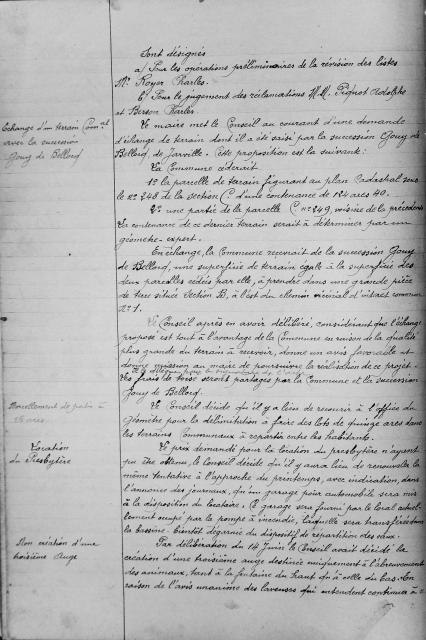 Sont désignés
a) Pour les opérations préliminaires de la révision des listes
Mr. Royer Charles.
b) Pour le jugement des réclamations M.M. Pignot Adolphe
et Berson Charles
Echange d'un terrain Com.al
avec la succession
Gouy de Bellocq
Le maire met le Conseil au courant d'une demande
d'échange de terrain dont il a été saisi par la succession Gouy de
Bellocq, de Jarville. Cette proposition est la suivante:
La Commune céderait
1o la parcelle de terrain figurant au plan Cadastral sous
le no 248 de la section C. d'une contenance de 124 ares 40.
2o une partie de la parcelle C. no 249, voisine de la précédente
La contenance de ce dernier terrain serait à déterminer par un
géomètre-expert.
En échange, la Commune recevrait de la succession Gouy
de Bellocq, une superficie de terrain égale à la superficie des
deux parcelles cédées par elle, à prendre dans une grande pièce
de terre située Section B, à l'est du chemin vicinal d'intérêt commun
No 1.
Le Conseil après en avoir délibéré, considérant que l'échange
proposé est tout à l'avantage de la Commune en raison de la qualité
plus grande du terrain à recevoir, donne un avis favorable et
donne mission au maire de poursuivre la réalisation de ce projet.
Les frais de toise seront partagés par la Commune et la succession
Gouy de Bellocq.
Morcellement de patis à
15 ares
Le Conseil décide qu'il y a lieu de recourir à l'office du
Géomètre pour la délimitation à faire des lots de quinze ares dans
les terrains Communaux à répartir entre les habitants.
Location
du Presbytère
Le prix demandé pour la location du presbytère n'ayant
pu être obtenu, le Conseil décide qu'il y aura lieu de renouveler la
même tentative à l'approche du printemps, avec indication, dans
l'annonce des journaux, qu'un garage pour automobile sera mis
à la disposition du locataire. Ce garage sera fourni par le local actuel-
lement occupé par la pompe à incendie, laquelle sera transférée dans
la bassine bientôt dégarnie du dispositif de répartition des eaux.
Non création d'une
troisième Auge
Par délibération du 14 Juin le Conseil avait décidé la
création d'une troisième auge destinée uniquement à l'abreuvement
des animaux, tant à la fontaine du haut qu'à celle du bas. En
raison de l'avis unanime des laveuses qui entendent continuer à